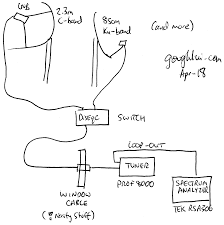 LNB
2.3m
C-band
85cm
Ku-band
(and more)
goughlui.com
Apr-18
DiSEqC
SWITCH
LOOP-OUT
TUNER
PROF 8000
WINDOW
CABLE
(nasty stuff)
SPECTRUM
ANALYZER
TEK RSA306